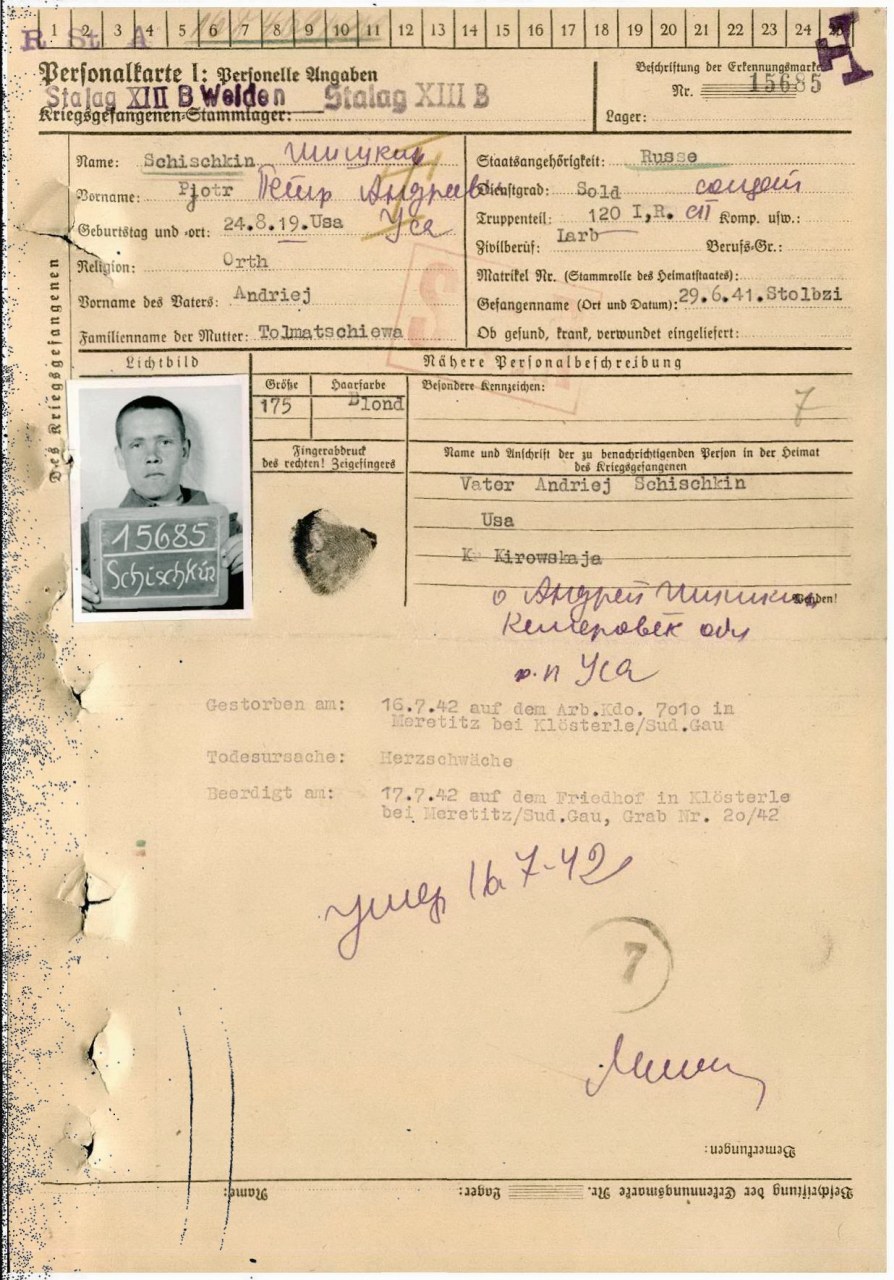 1 2 3 4 5 6 7 8 9 10 11 12 13 14 15 16 17 18 19 20 21 22 23 24
R St A
H
Personalkarte I: Personelle Angaben
Stalag XIII B Weiden Stalag XIII B
Kriegsgefangenen-Stammlager:
Beschriftung der Erkennungsmarke
Nr. 15685
Lager:
Des Kriegsgefangenen
Name: Schischkin Шишкин
Vorname: Pjotr Петр Андреев
Geburtstag und -ort: 24.8.19.Usa Уса
Religion: Orth
Vorname des Vaters: Andriej
Familienname der Mutter: Tolmatschiewa
Staatsangehörigkeit: Russe
Dienstgrad: Sold солдат
Truppenteil: 120 I,R. СП Komp. usw.:
Zivilberuf: Iarb Berufs-Gr.:
Matrikel Nr. (Stammrolle des Heimatstaates):
Gefangenname (Ort und Datum): 29.6.41.Stolbzi
Ob gesund, krank, verwundet eingeliefert:
Lichtbild
Nähere Personalbeschreibung
Größe Haarfarbe
175 Blond
Besondere Kennzeichen:
7
Fingerabdruck
des rechten! Zeigefingers
Name und Anschrift der zu benachrichtigenden Person in der Heimat
des Kriegsgefangenen
Vater Andriej Schischkin
Usa
K Kirowskaja
15685
Schischkin
о Андрей Шишкин
р.п Уса
Gestorben am: 16.7.42 auf dem Arb.Kdo. 7o1o in
Meretitz bei Klösterle/Sud.Gau
Todesursache: Herzschwäche
Beerdigt am: 17.7.42 auf dem Friedhof in Klösterle
bei Meretitz/Sud.Gau, Grab Nr. 2o/42
умер 16 7-42
7
Bemerkungen:
Beschriftung der Erkennungsmarke Nr. Lager: Name: